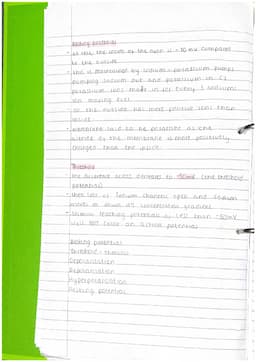 Resting potential
- at rest the inside of the axon is -70mv compared
to the outside
- this is maintained by sodium-potassium pumps
pumping sodium out and potassium in (2
potassium ions made in for every 3 sodium
ion moving out)
so the outside has more positive ions than
inside
- membrane said to be polarised as the
outside of the membrane is more positively
charged than the inside
Threshold
the difference across decreases to -50mV (the threshold
potential)
- then lots of sodium channels open and sodium
down its concentration gradient
- stimuli reaching potentials less than -50mV
will not cause an action potential
Resting potential
threshold - stimulus
Depolarisation
Repolarisation
Hyperpolarisation
Resting potential